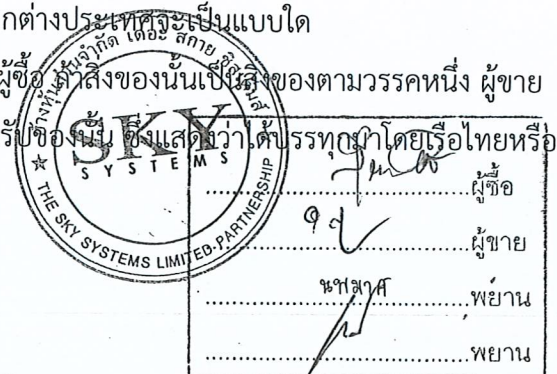 กต่างประเทศจะเป็นแบบใด
ผู้ซื้อ ถ้าสิ่งของนั้นเป็นสิ่งของตามวรรคหนึ่ง ผู้ขาย
รับของนั้น ซึ่งแสดงว่าได้บรรทุกมาโดยเรือไทยหรือ
ห้างหุ้นส่วนจำกัด เดอะ สกาย ซิสเต็มส์
SKY
SYSTEMS
☆ THE SKY SYSTEMS LIMITED-PARTNERSHIP
..............................ผู้ซื้อ
..............................ผู้ขาย
นพมาศ
..............................พยาน
..............................พยาน